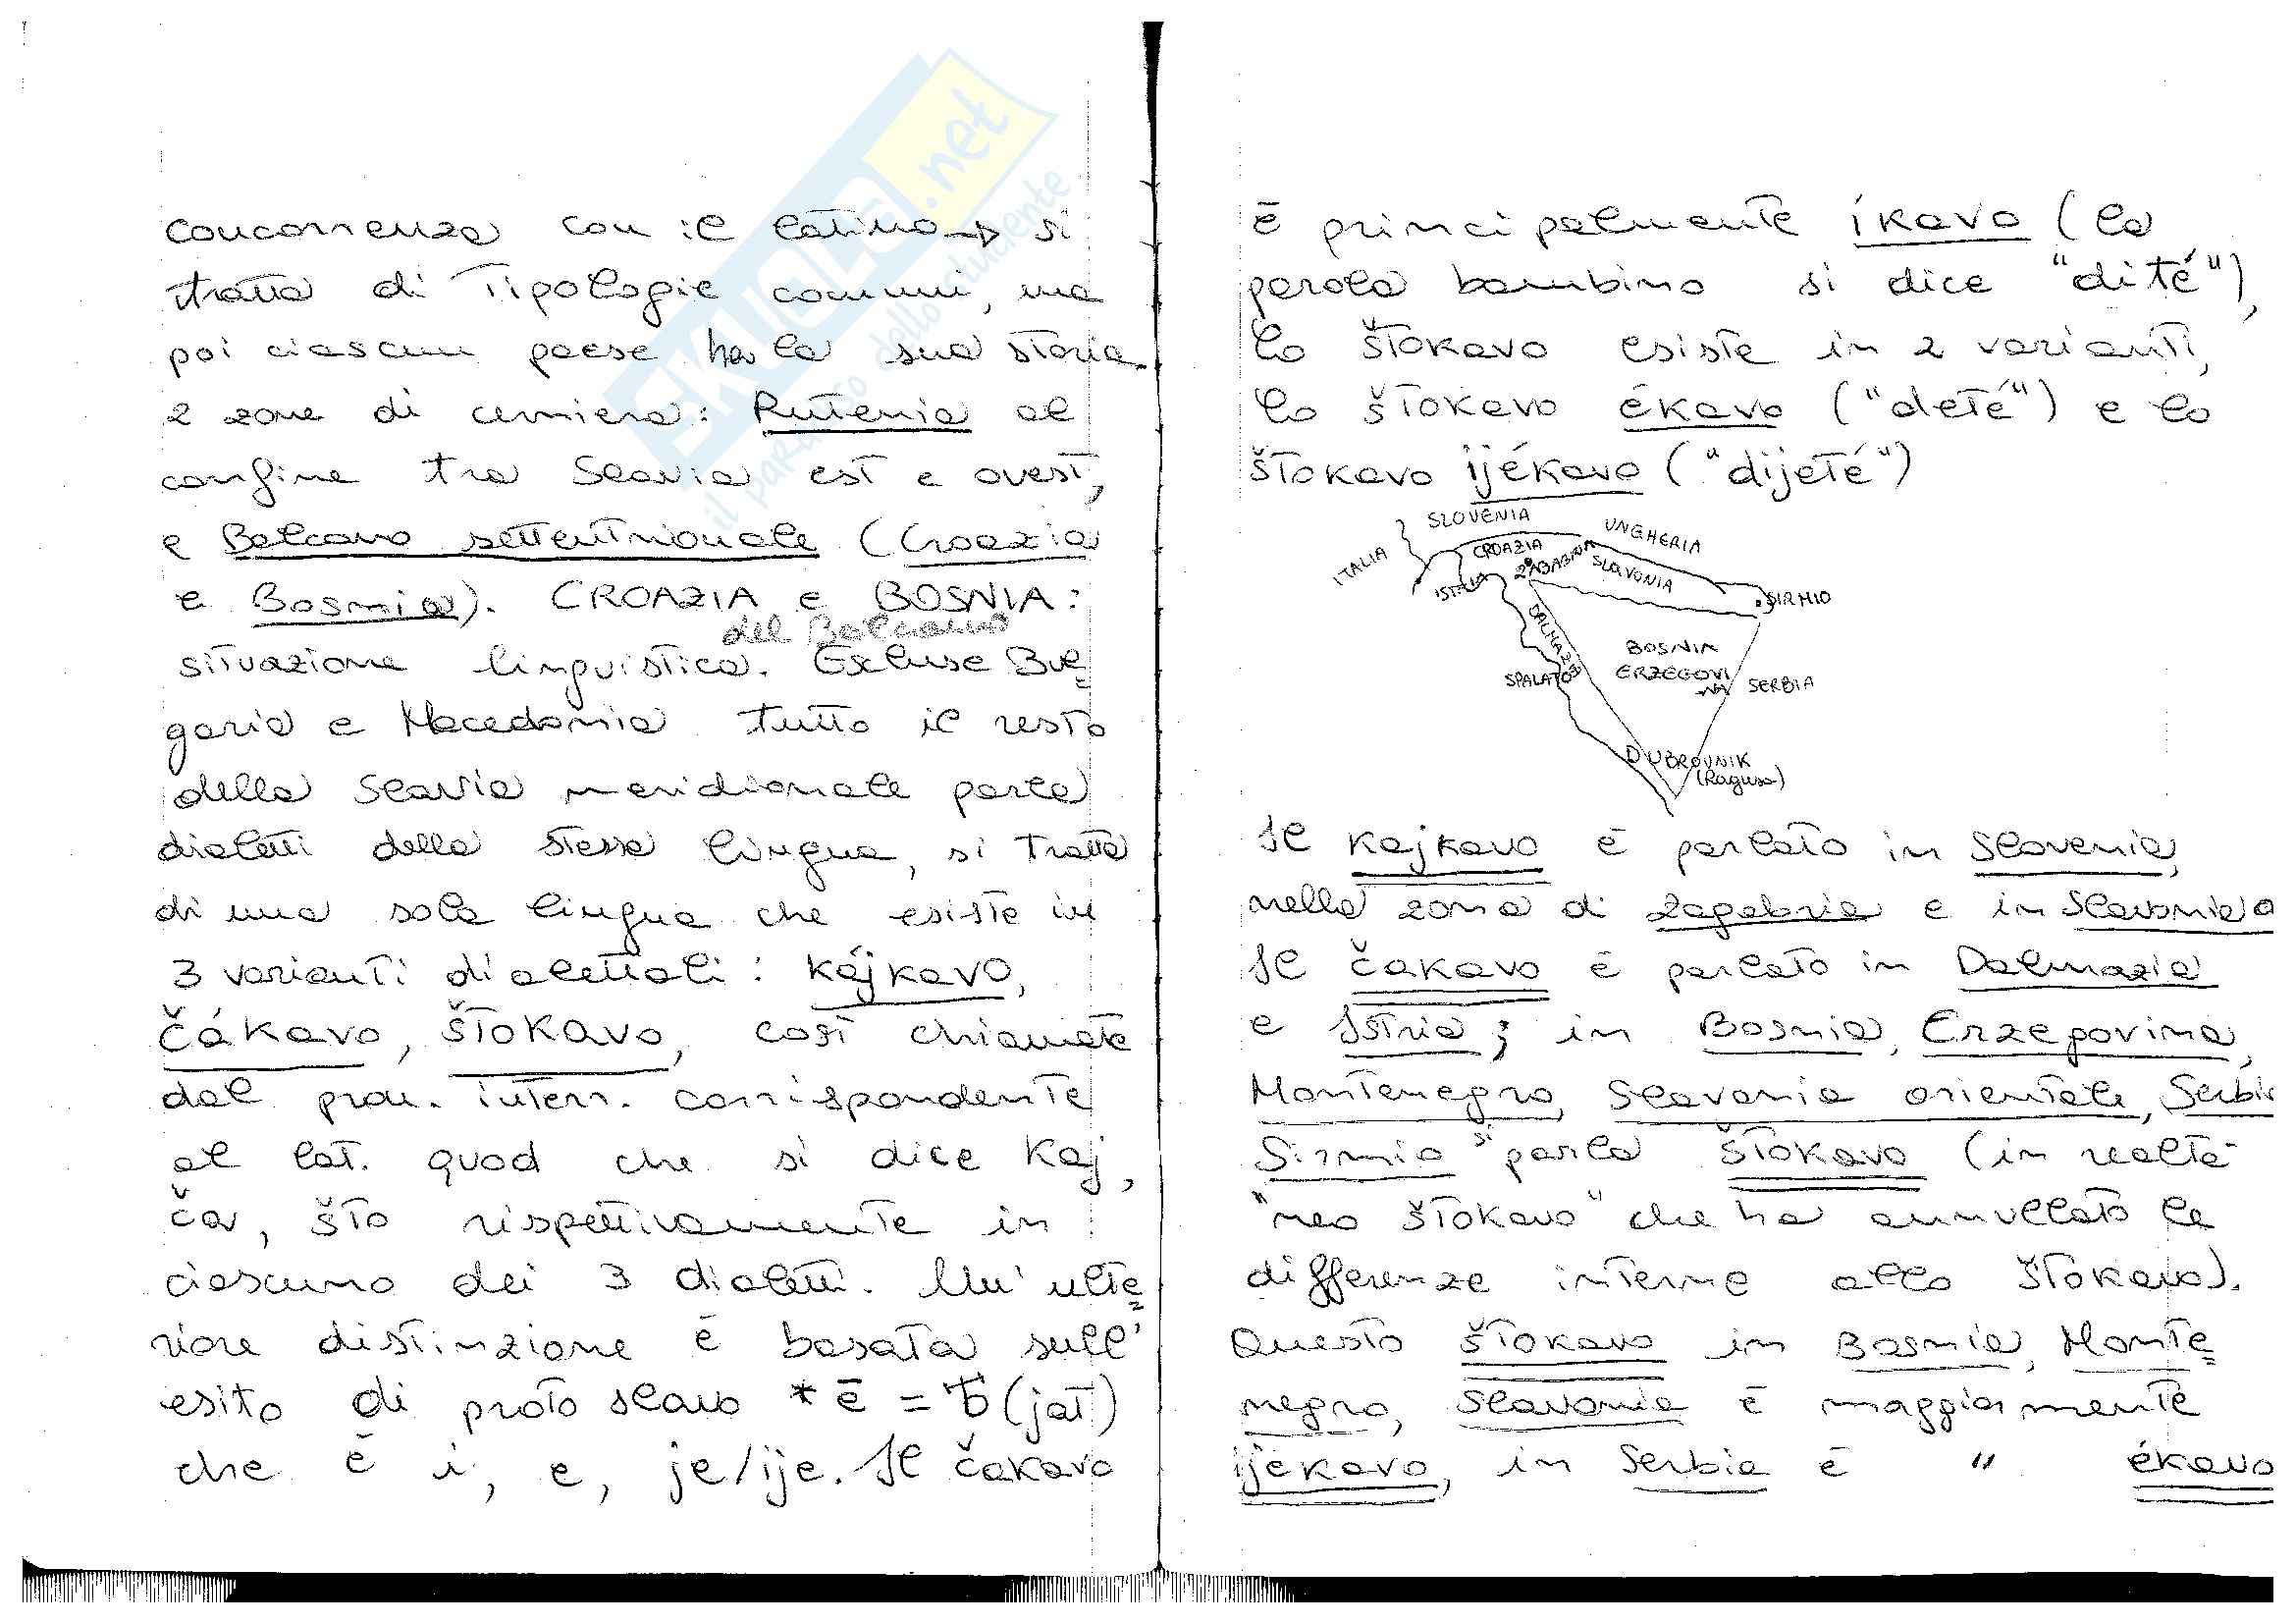 concorrenza con il latino → si
tratta di tipologie comuni, ma
poi ciascun paese ha la sua storia.
2 zone di cerniera: Rutenia al
confine tra Slavia est e ovest,
e Balcano settentrionale (Croazia
e Bosnia). CROAZIA e BOSNIA:
del Balcano
situazione linguistica. Escluse Bul=
garia e Macedonia tutto il resto
della Slavia meridionale parla
dialetti della stessa lingua, si tratta
di una sola lingua che esiste in
3 varianti dialettali: kájkavo,
čákavo, štokavo, così chiamate
dal pron. interr. corrispondente
al lat. quod che si dice kaj,
ča, što rispettivamente in
ciascuno dei 3 dialetti. Un'ulte=
riore distinzione è basata sull'
esito di proto slavo *ē = ѣ (jat)
che è i, e, je/ije. Il čakavo
è principalmente íkavo (la
parola bambino si dice "dité"),
lo štokavo esiste in 2 varianti,
lo štokavo ékavo ("deté") e lo
štokavo ijékavo ("dijeté")
SLOVENIA
UNGHERIA
ITALIA
CROAZIA
ZAGABRIA
SLAVONIA
ISTRIA
SIRMIO
DALMAZIA
BOSNIA
ERZEGOVI
NA
SERBIA
SPALATO
DUBROVNIK
(Ragusa)
Il kajkavo è parlato in Slovenia,
nella zona di Zagabria e in Slavonia
Il čakavo è parlato in Dalmazia
e Istria; in Bosnia, Erzegovina,
Montenegro, Slavonia orientale, Serbia
Sirmio si parla štokavo (in realtà
"neo štokavo" che ha annullato le
differenze interne allo štokavo).
Questo štokavo in Bosnia, Monte=
negro, Slavonia è maggiormente
ijékavo, in Serbia è " ékavo
SKUOLA.net
il paradiso dello studente